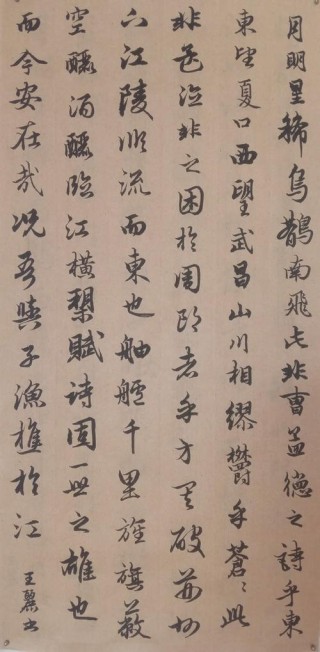 月明星稀烏鵲南飛此非曹孟德之詩乎東
東望夏口西望武昌山川相繆欝乎蒼〻此
非之困於周郎者乎方其破荊州
下江陵順流而東也舳艫千里旌旗蔽
空釃酒釃臨江橫槊賦詩固一世之雄也
而今安在哉況吾與子漁樵於江
王麗书